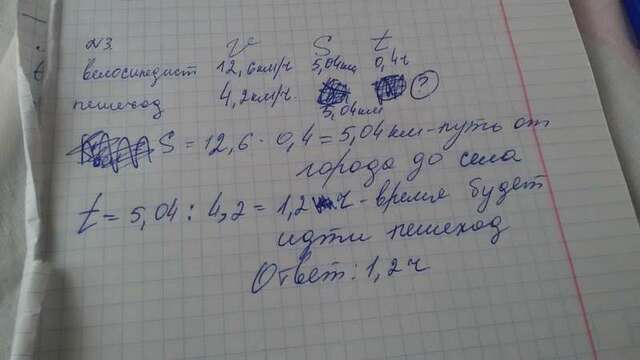 №3.
V S t
велосипедист 12,6км/ч 5,04км 0,4ч
пешеход 4,2км/ч. ?
5,04км
S = 12,6 · 0,4 = 5,04 км - путь от
города до села
t = 5,04 : 4,2 = 1,2 ч - время будет
идти пешеход
Ответ: 1,2 ч